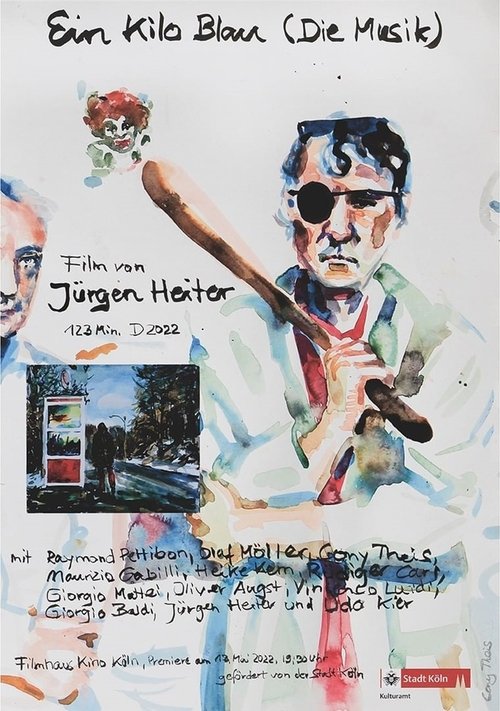 Ein Kilo Blau (Die Musik)
Film von
Jürgen Heiter
123 Min. D 2022
mit Raymond Pettibon, Olaf Möller, Cony Theis,
Maurizio Gabilli, Heike Kern, Rüdiger Carl,
Giorgio Mattei, Oliver Augst, Vincenzo
Giorgio Baldi, Jürgen Heiter und Udo Kier
Filmhaus Kino Köln, Premiere am 13. Mai 2022, 19,30 Uhr
gefördert von der Stadt Köln
Stadt Köln
Kulturamt
Cony Theis